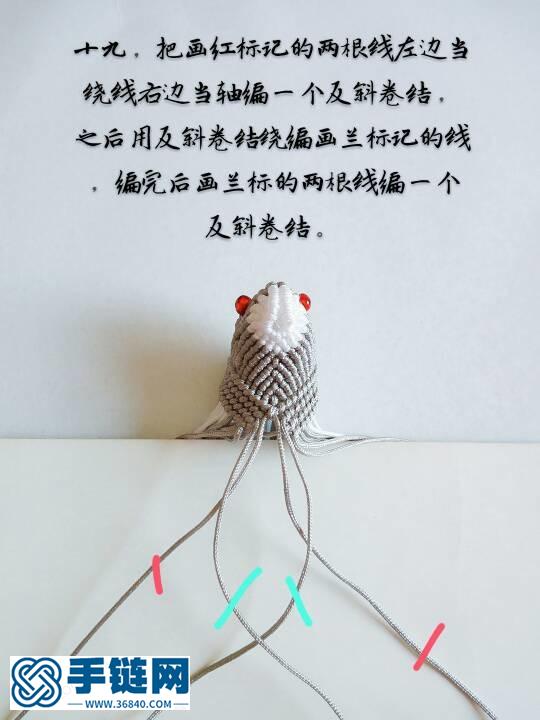 十九，把画红标记的两根线左边当
绕线右边当轴编一个反斜卷结，
之后用反斜卷结绕编画兰标记的线
，编完后画兰标的两根线编一个
反斜卷结。
手链网
WWW.36840.COM